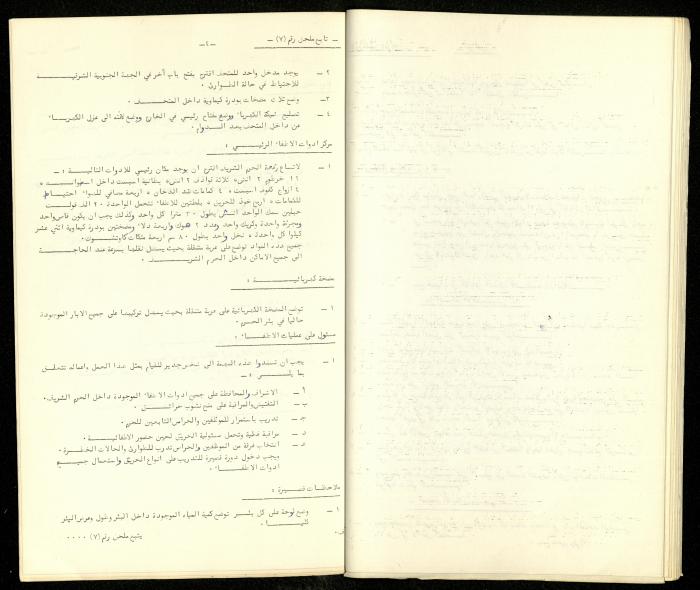 ـ تابع ملحق رقم (٧) ـ
ـ٤ـ
٢ ـ يوجد مدخل واحد للمتحف اقترح بفتح باب آخر في الجهة الجنوبية الشرقية
للاحتياط في حالة الطوارئ .
٣ ـ وضع ثلاث مضخات بودرة كيماوية داخل المتحف .
٤ ـ تصليح شبكة الكهرباء ووضع مفتاح رئيسي في الخارج ووضع لافتة الى عزل الكهرباء
من داخل المتحف بعد الدوام .
مركز ادوات الاطفاء الرئيسي :
١ ـ لاتساع رقعة الحرم الشريف اقترح ان يوجد مكان رئيسي للادوات التالية : ـ
١١ خرطوم ٢ انش ثلاثة قواذف ٢ انش بطانية اسبست داخل
٤ ازواج كفوف اسبست ٤ كمامات ضد الدخان اربعة مصافي للهواء احتياط
للكمامات اربع خوذ للحريق بلطتين للاطفاء تتحمل الواحدة ٢٠ الف فولت
حبلين سمك الواحد انش بطول ٣٠ مترا كل واحد وكذلك يجب ان يكون فاس واحد
ومجرفة واحدة وكريك واحد وعدد ٢ هوك واربعة دلاء ومضختين بودرة كيماوية اثني عشر
كيلوا كل واحدة نخل واحد بطول ٨٠ سم اربعة
جميع هذه المواد توضع على عربة متنقلة بحيث يسهل نقلها بسرعة عند الحاجة
الى جميع الاماكن داخل الحرم الشريف .
مضخة كهربائية :
١ ـ توضع المضخة الكهربائية على عربة متنقلة بحيث يسهل تركيبها على جميع الابار الموجودة
حاليا في بئر الحرم .
مسئول على عمليات الاطفاء .
١ ـ يجب ان تسندوا هذه المهمة الى شخص جدير للقيام بمثل هذا العمل واعماله تتعلق
بما يلي : ـ
أ ـ الاشراف والمحافظة على جميع ادوات الاطفاء الموجودة داخل الحرم الشريف.
ب ـ التفتيش والمراقبة على منع نشوب حرائق .
جـ ـ تدريب باستمرار للموظفين والحراس التابعين للحرم .
د ـ مراقبة فعلية وتحمل مسئولية الحريق لحين حضور الاطفائية .
هـ ـ انتخاب فرقة من الموظفين والحراس تدرب للطوارئ والحالات الخطرة .
ويجب دخول دورة قصيرة للتدريب على انواع الحريق واستعمال جميع
ادوات الاطفاء .
ملاحظات قصيرة :
١ ـ وضع لوحة على كل بئر توضح كمية المياه الموجودة داخل البئر وطول وعرض البئر
يتبع ملحق رقم (٧) ٠٠٠٠